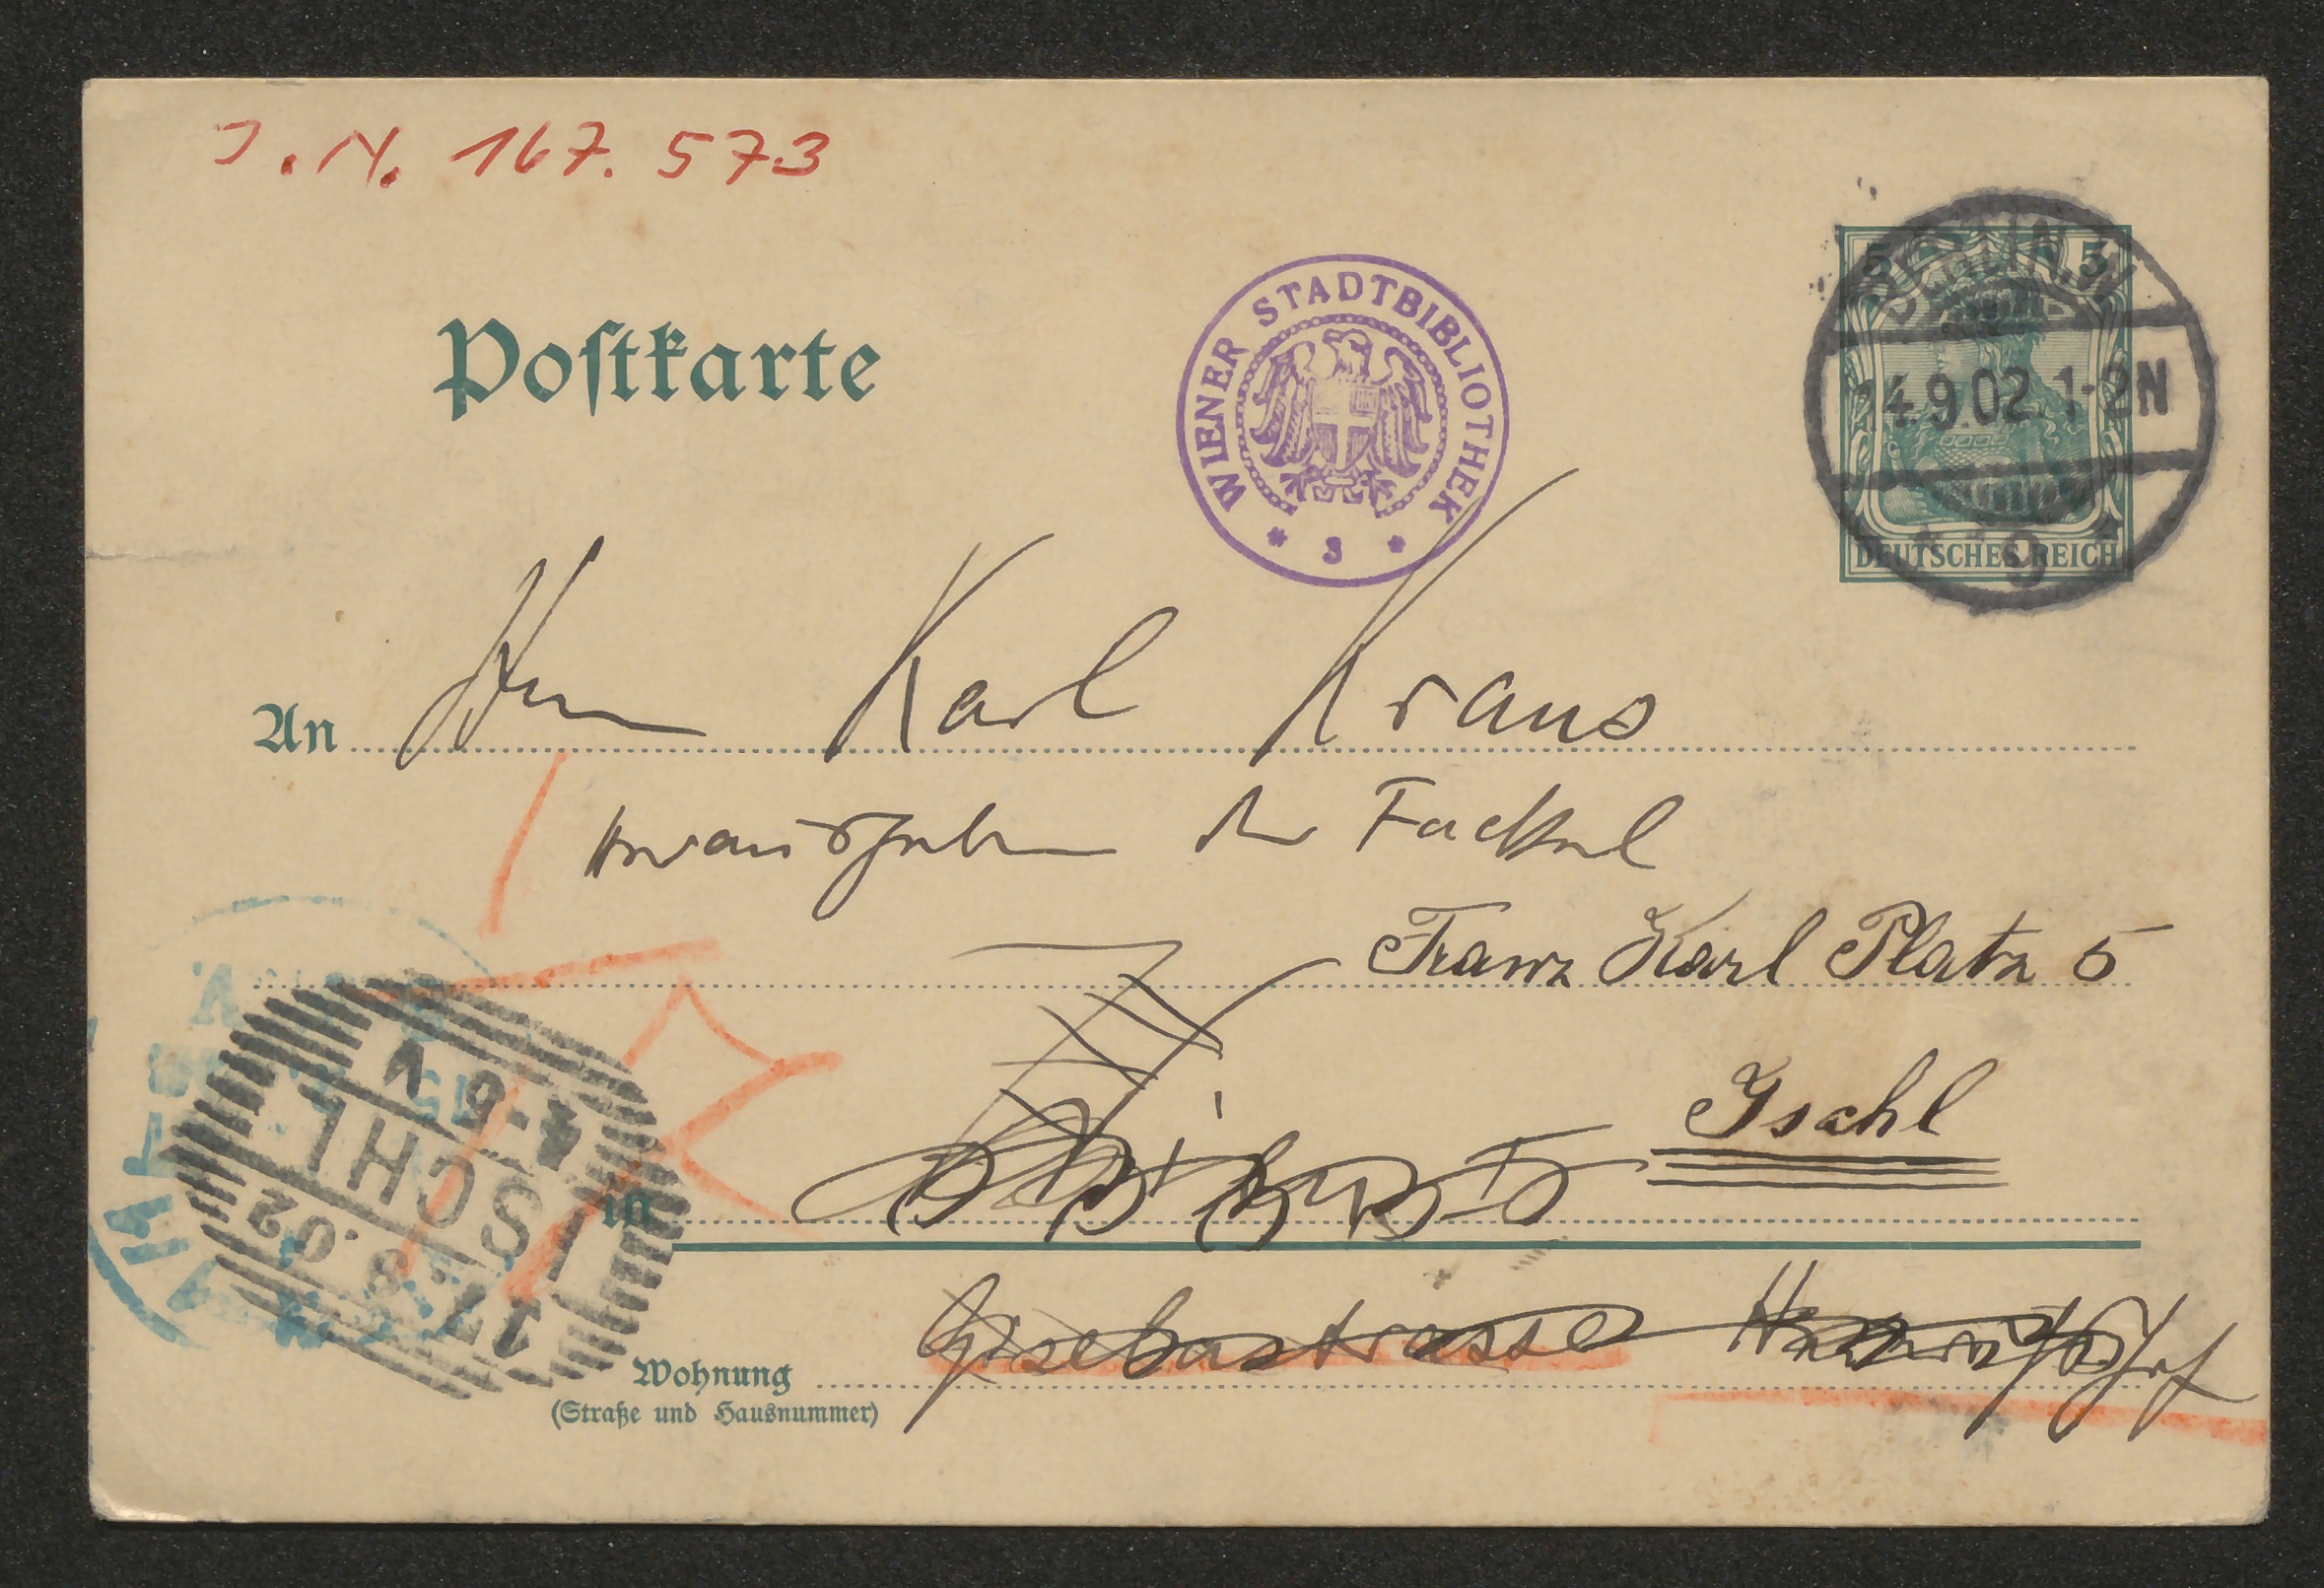 J.N. 167.573
Postkarte
WIENER STADTBIBLIOTHEK
* 3 *
5 5
BERLIN.W.
14.9.02.1-2N
* 9 *
DEUTSCHES REICH
An Herrn Karl Kraus
Herausgeber der Fackel
Franz Karl Platz 5
Ischl
in
ISCHL
Wohnung Giselastrasse
(Straße und Hausnummer)